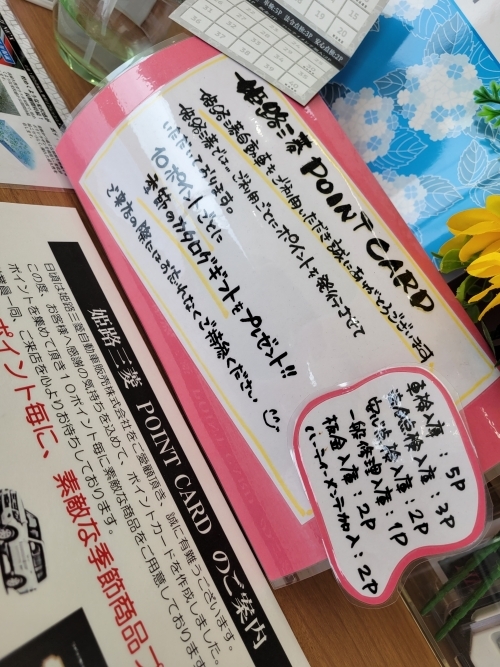 姫路三菱 POINT CARD
姫路三菱自動車をご利用いただき誠にありがとうございます
姫路三菱では、ご利用ごとにポイントを発行させて
いただいております。
10ポイントごとに
季節のカタログギフトをプレゼント!!
ご来店の際にはお忘れなくご持参ください
車検入庫:5P
法令点検入庫:3P
安心点検入庫:2P
一般修理入庫:1P
板金入庫:2P
ハーティメンテ加入:2P
姫路三菱 POINT CARD のご案内
日頃は姫路三菱自動車販売株式会社をご愛顧頂き、誠に有難うございます。
この度、お客様へ感謝の気持ちを込めて、ポイントカードを作成しました。
ポイントを集めて頂き、10ポイント毎に素敵な商品をご用意しております
員一同、ご来店を心よりお待ちしております。
ポイント毎に、素敵な季節商品
法令点検:3P 安心点検:2P
15
20
19
25
31
32
36
37
38